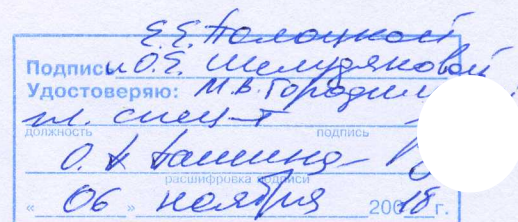 Е.Е. Полоцкой
Подпись О.Е. Шелудяковой
Удостоверяю: М.В. Городил
гл. спец-т
должность подпись
О.
расшифровка подписи
« 06 » ноября 2018 г.